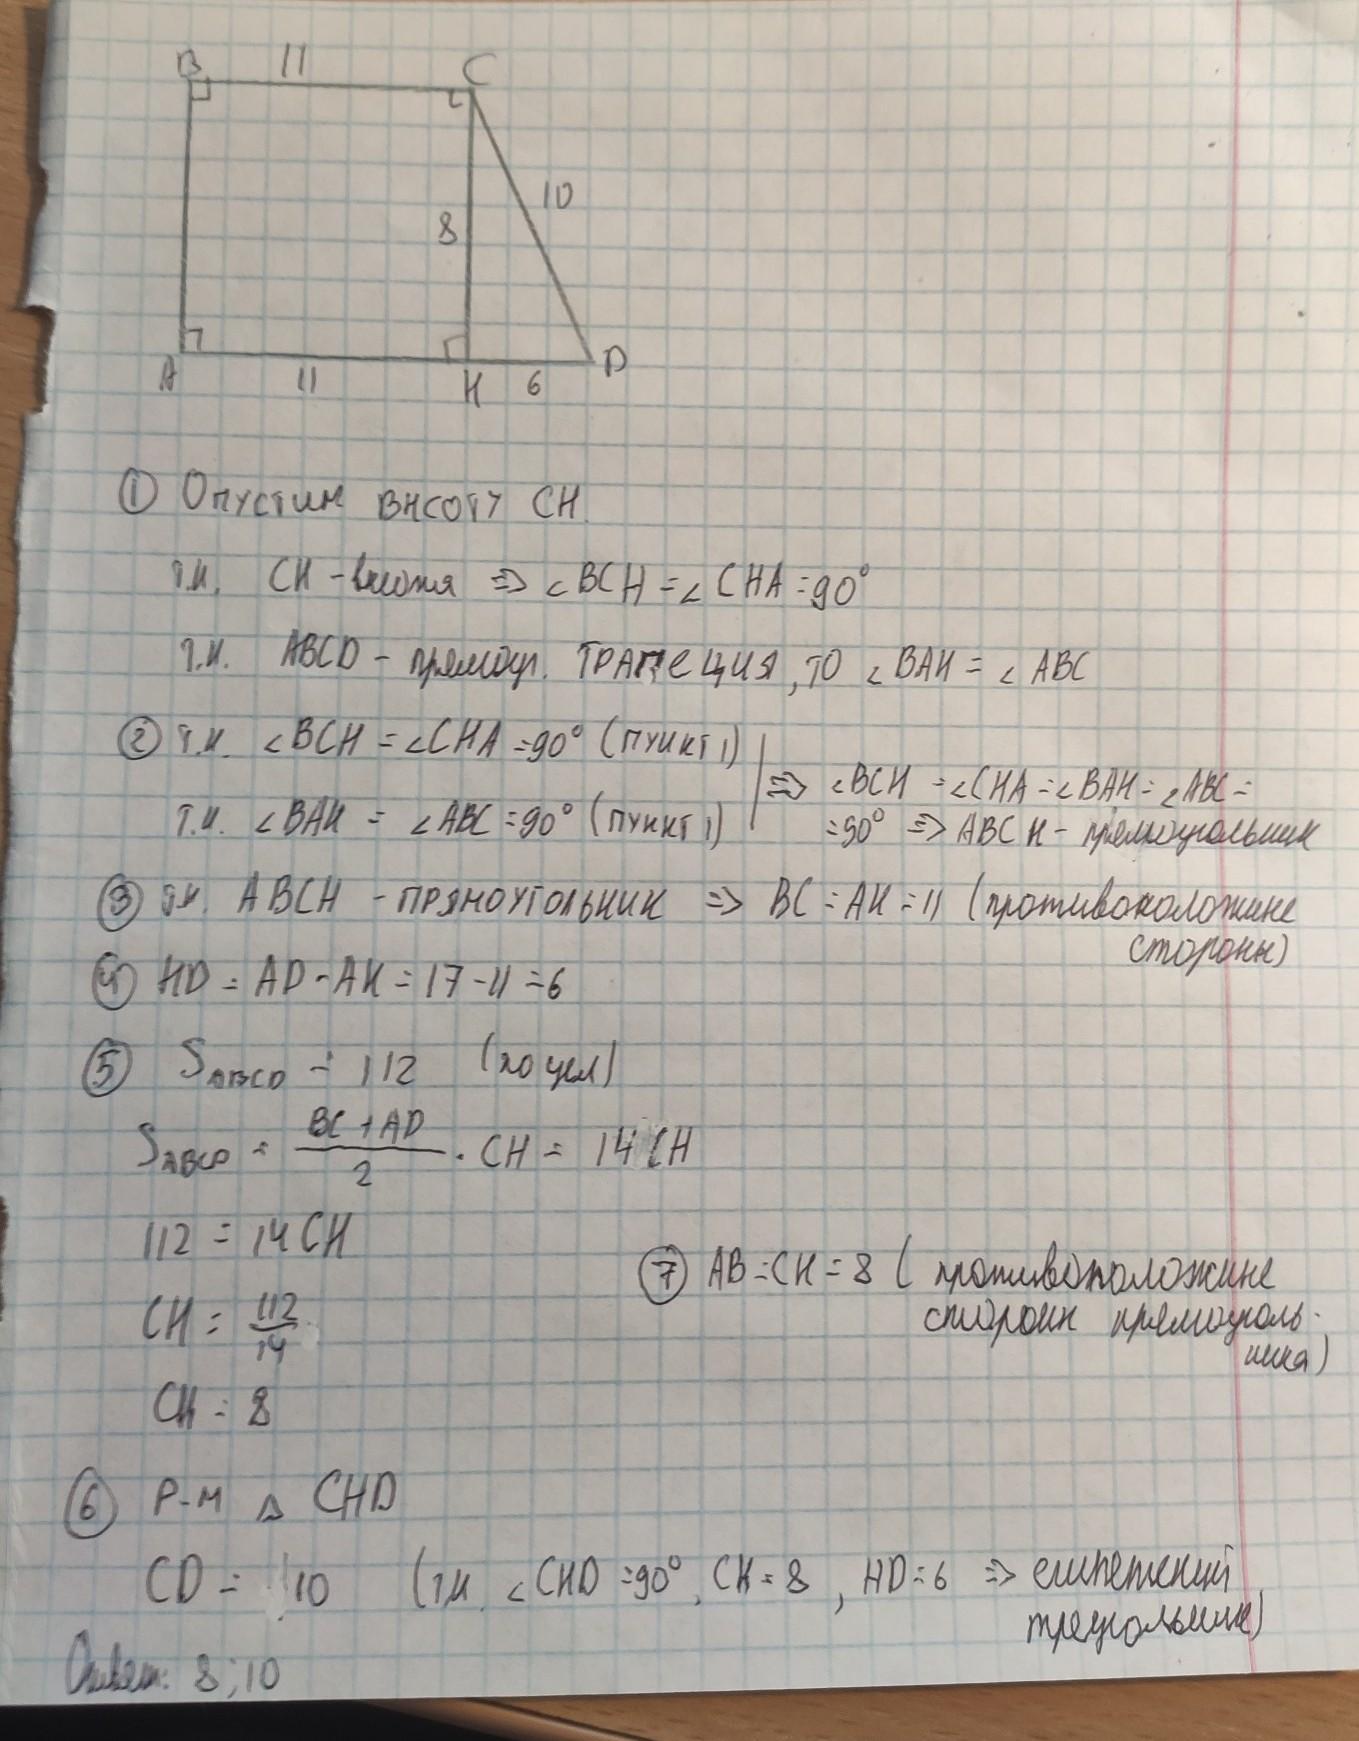 B 11 C
8 10
A 11 H 6 D
① Опустим высоту CH
т.к. CH - высота => ∠BCH = ∠CHA = 90°
т.к. ABCD - прямоуг. трапеция, то ∠BAH = ∠ABC
② т.к. ∠BCH = ∠CHA = 90° (пункт 1)
т.к. ∠BAH = ∠ABC = 90° (пункт 1)
=> ∠BCH = ∠CHA = ∠BAH = ∠ABC =
= 90° => ABCH - прямоугольник
③ т.к. ABCH - прямоугольник => BC = AH = 11 (противоположные
стороны)
④ HD = AD - AH = 17 - 11 = 6
⑤ S_ABCD = 112 (по усл)
S_ABCD = (BC + AD)/2 · CH = 14CH
112 = 14CH
CH = 112/14
CH = 8
⑥ Р-м △ CHD
CD = 10 (т.к. ∠CHD = 90°, CH = 8, HD = 6 => египетский
треугольник)
⑦ AB = CH = 8 (противоположные
стороны прямоуголь-
ника)
Ответ: 8; 10